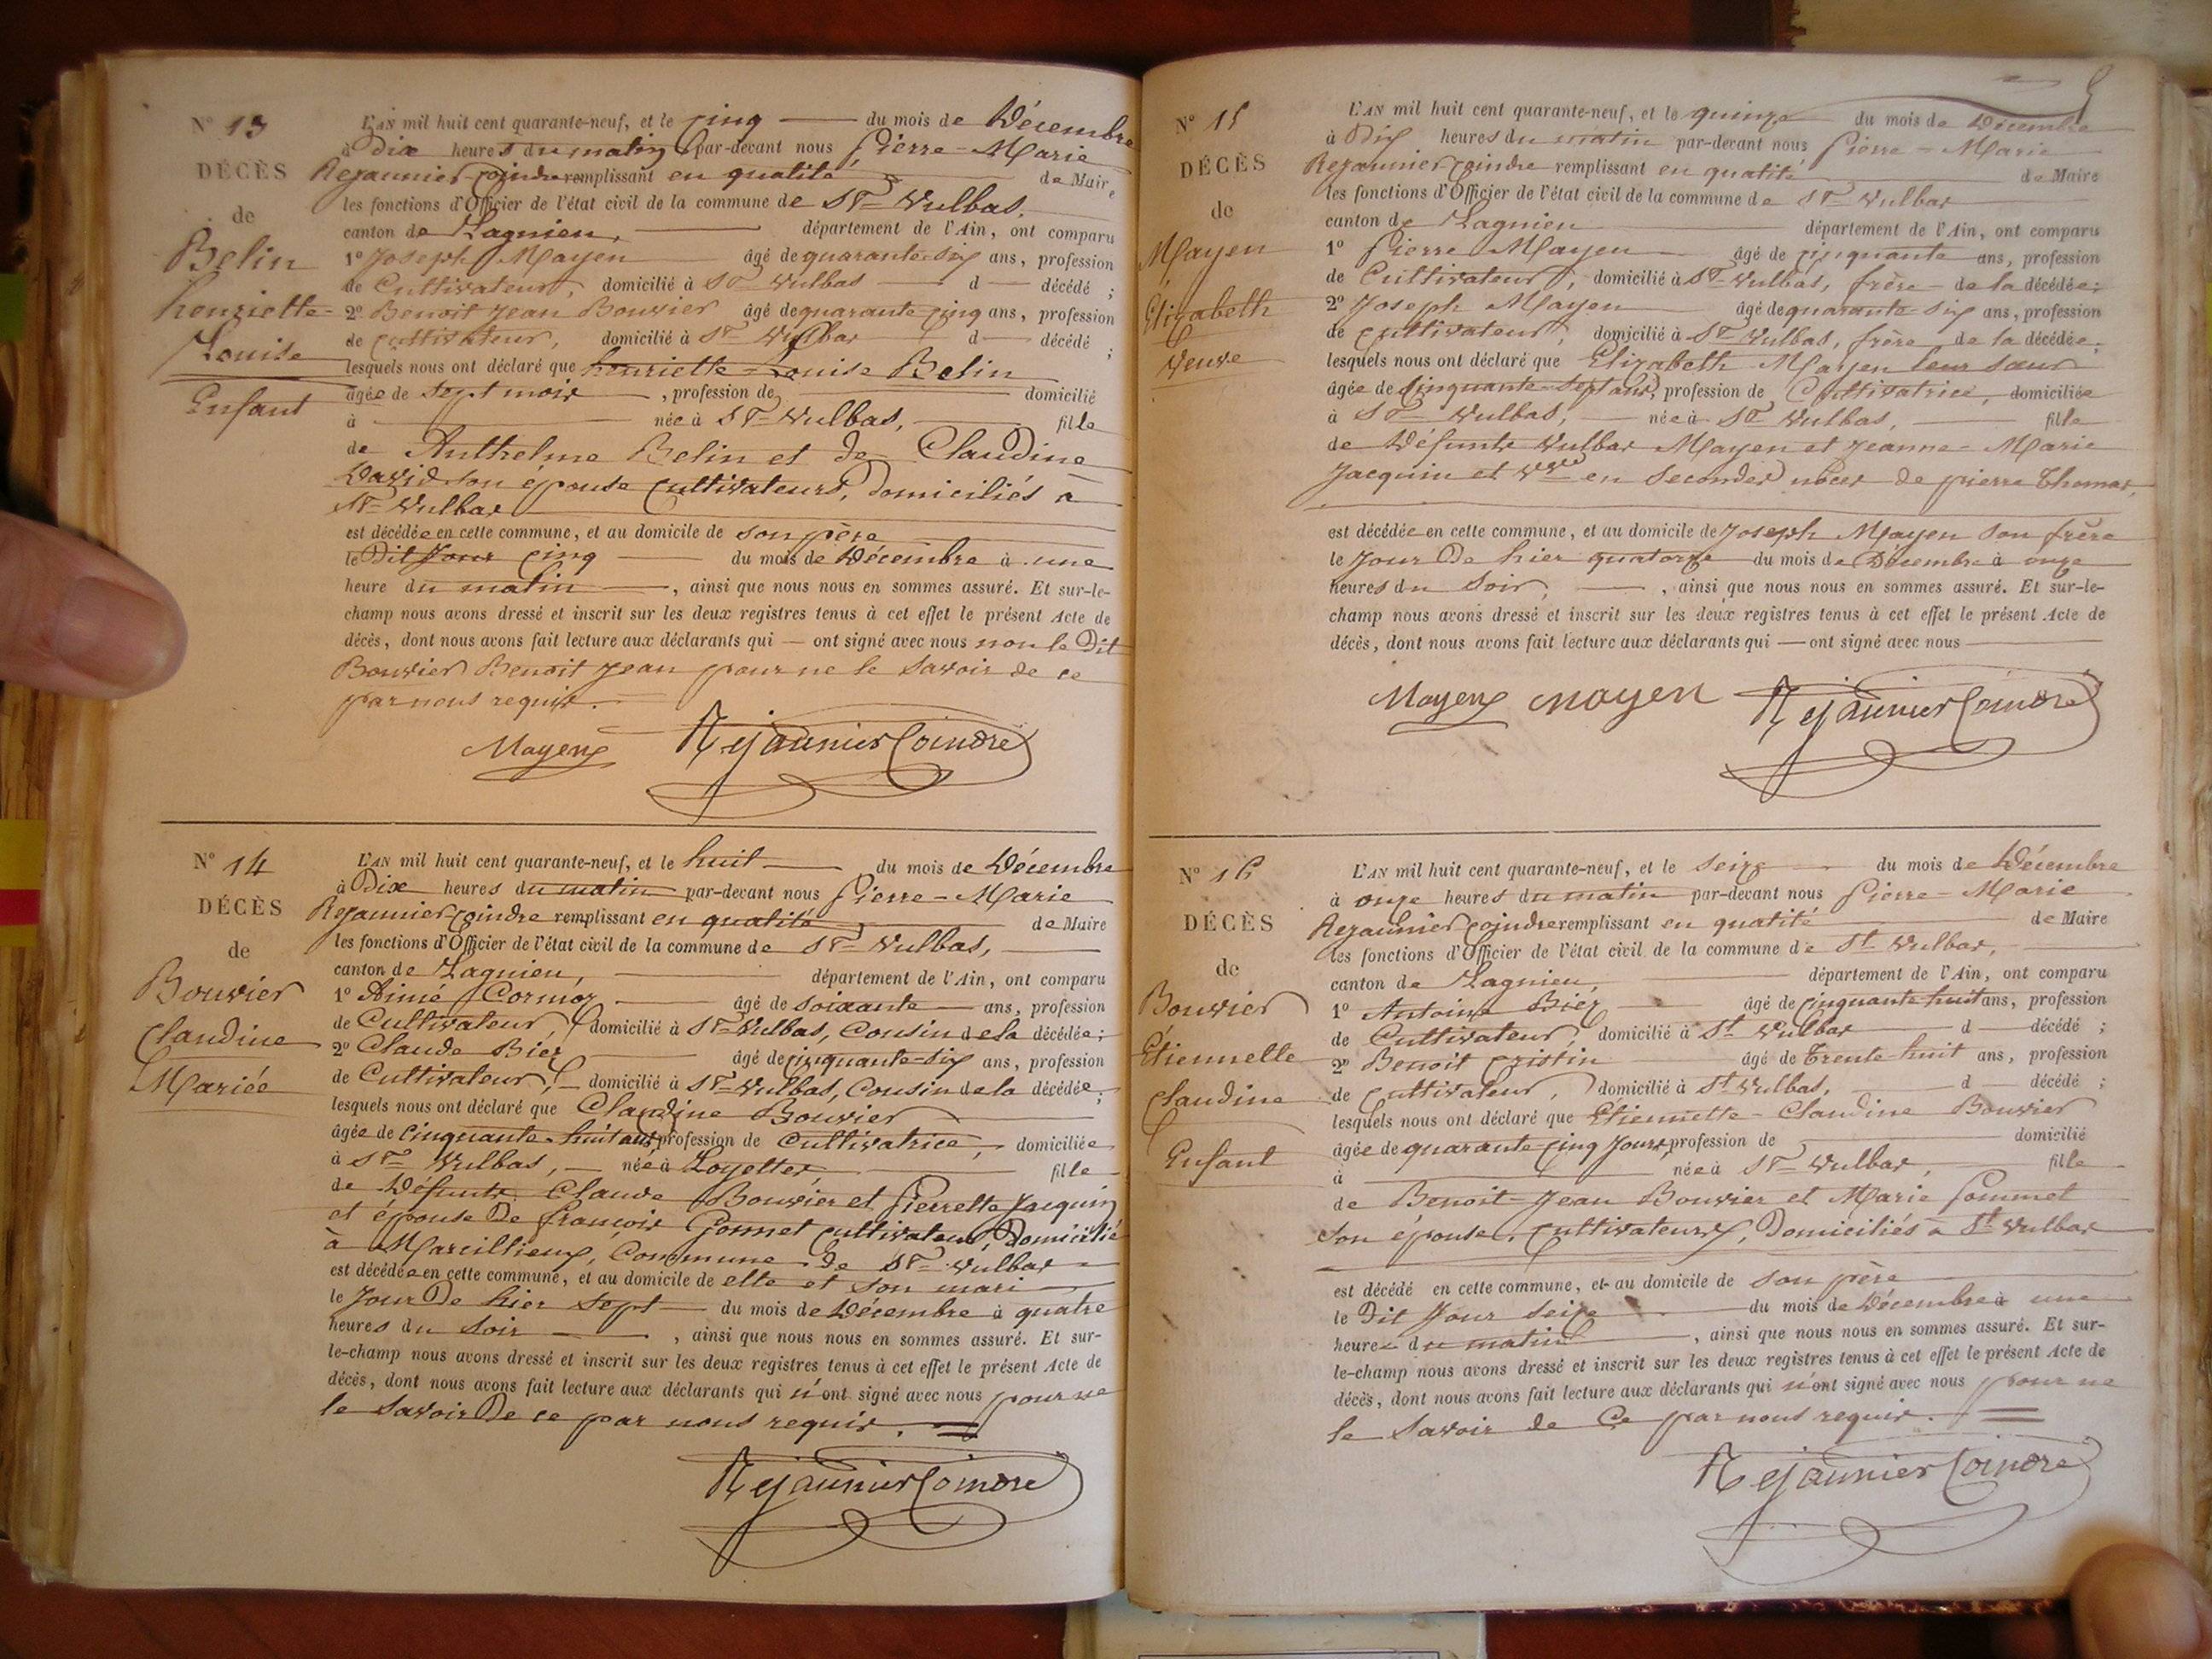 N° 13
DÉCÈS
de
Belin
henriette-
Louise
Enfant
L'AN mil huit cent quarante-neuf, et le cinq du mois de Décembre
à Dix heures du matin par-devant nous Pierre-Marie
Rejaunier Coindre remplissant en qualité de Maire
les fonctions d'Officier de l'état civil de la commune de St Vulbas,
canton de Lagnieu, département de l'Ain, ont comparu
1° Joseph Mayen âgé de quarante-six ans, profession
de Cultivateur, domicilié à St Vulbas d décédé ;
2° Benoit Jean Bouvier âgé de quarante cinq ans, profession
de cultivateur, domicilié à St Vulbas d décédé ;
lesquels nous ont déclaré que henriette-Louise Belin
âgée de sept mois, profession de domicilié
à née à St Vulbas, fille
de Anthelme Belin et de Claudine
David son épouse cultivateurs, domiciliés à
St Vulbas
est décédée en cette commune, et au domicile de son père
le Dit Jour cinq du mois de Décembre à une
heure du matin, ainsi que nous nous en sommes assuré. Et sur-le-
champ nous avons dressé et inscrit sur les deux registres tenus à cet effet le présent Acte de
décès, dont nous avons fait lecture aux déclarants qui — ont signé avec nous non le Dit
Bouvier Benoit Jean pour ne le savoir de ce
par nous requis.
Mayen Rejaunier Coindre
N° 14
DÉCÈS
de
Bouvier
Claudine
Mariée
L'AN mil huit cent quarante-neuf, et le huit du mois de Décembre
à Dix heures du matin par-devant nous Pierre-Marie
Rejaunier Coindre remplissant en qualité de Maire
les fonctions d'Officier de l'état civil de la commune de St Vulbas,
canton de Lagnieu, département de l'Ain, ont comparu
1° Aimé Cormoz âgé de soixante ans, profession
de Cultivateur, domicilié à St Vulbas, Cousin de la décédée ;
2° Claude Bier âgé de cinquante-six ans, profession
de Cultivateur, domicilié à St Vulbas, Cousin de la décédée ;
lesquels nous ont déclaré que Claudine Bouvier
âgée de cinquante-huit ans profession de Cultivatrice, domiciliée
à St Vulbas, née à Loyettes, fille
de Défunts Claude Bouvier et Pierrette Jacquin
et épouse De françois Gonnet cultivateur, domicilié
à Marcillieux, Commune de St Vulbas
est décédée en cette commune, et au domicile de elle et son mari
le Jour De hier sept du mois de Décembre à quatre
heures du Soir, ainsi que nous nous en sommes assuré. Et sur-
le-champ nous avons dressé et inscrit sur les deux registres tenus à cet effet le présent Acte de
décès, dont nous avons fait lecture aux déclarants qui n'ont signé avec nous pour ne
le savoir De ce par nous requis.
Rejaunier Coindre
N° 15
DÉCÈS
de
Mayen
Elizabeth
Veuve
L'AN mil huit cent quarante-neuf, et le quinze du mois de Décembre
à Dix heures du matin par-devant nous Pierre-Marie
Rejaunier Coindre remplissant en qualité de Maire
les fonctions d'Officier de l'état civil de la commune de St Vulbas
canton de Lagnieu département de l'Ain, ont comparu
1° Pierre Mayen âgé de cinquante ans, profession
de Cultivateur, domicilié à St Vulbas, frère de la décédée ;
2° Joseph Mayen âgé de quarante-six ans, profession
de cultivateur, domicilié à St Vulbas, frère de la décédée ;
lesquels nous ont déclaré que Elizabeth Mayen leur sœur
âgée de cinquante-sept ans, profession de Cultivatrice, domiciliée
à St Vulbas, née à St Vulbas, fille
de Défunts Vulbas Mayen et Jeanne-Marie
Jacquin et Vve en secondes noces de pierre Thomas,
est décédée en cette commune, et au domicile de Joseph Mayen son frère
le Jour De hier quatorze du mois de Décembre à onze
heures du Soir, ainsi que nous nous en sommes assuré. Et sur-le-
champ nous avons dressé et inscrit sur les deux registres tenus à cet effet le présent Acte de
décès, dont nous avons fait lecture aux déclarants qui — ont signé avec nous
Mayen Mayen Rejaunier Coindre
N° 16
DÉCÈS
de
Bouvier
Etiennette
Claudine
Enfant
L'AN mil huit cent quarante-neuf, et le seize du mois de Décembre
à onze heures du matin par-devant nous Pierre-Marie
Rejaunier Coindre remplissant en qualité de Maire
les fonctions d'Officier de l'état civil de la commune de St Vulbas,
canton de Lagnieu, département de l'Ain, ont comparu
1° Antoine Bier âgé de cinquante huit ans, profession
de Cultivateur, domicilié à St Vulbas d décédé ;
2° Benoit Cristin âgé de Trente huit ans, profession
de cultivateur, domicilié à St Vulbas, d décédé ;
lesquels nous ont déclaré que Etiennette-Claudine Bouvier
âgée de quarante-cinq Jours, profession de domicilié
à née à St Vulbas, fille
de Benoit-Jean Bouvier et Marie Pommet
son épouse, cultivateurs, Domiciliés à St Vulbas
est décédé en cette commune, et au domicile de son père
le Dit Jour seize du mois de Décembre à une
heure du matin, ainsi que nous nous en sommes assuré. Et sur-
le-champ nous avons dressé et inscrit sur les deux registres tenus à cet effet le présent Acte de
décès, dont nous avons fait lecture aux déclarants qui n'ont signé avec nous pour ne
le savoir de Ce par nous requis.
Rejaunier Coindre